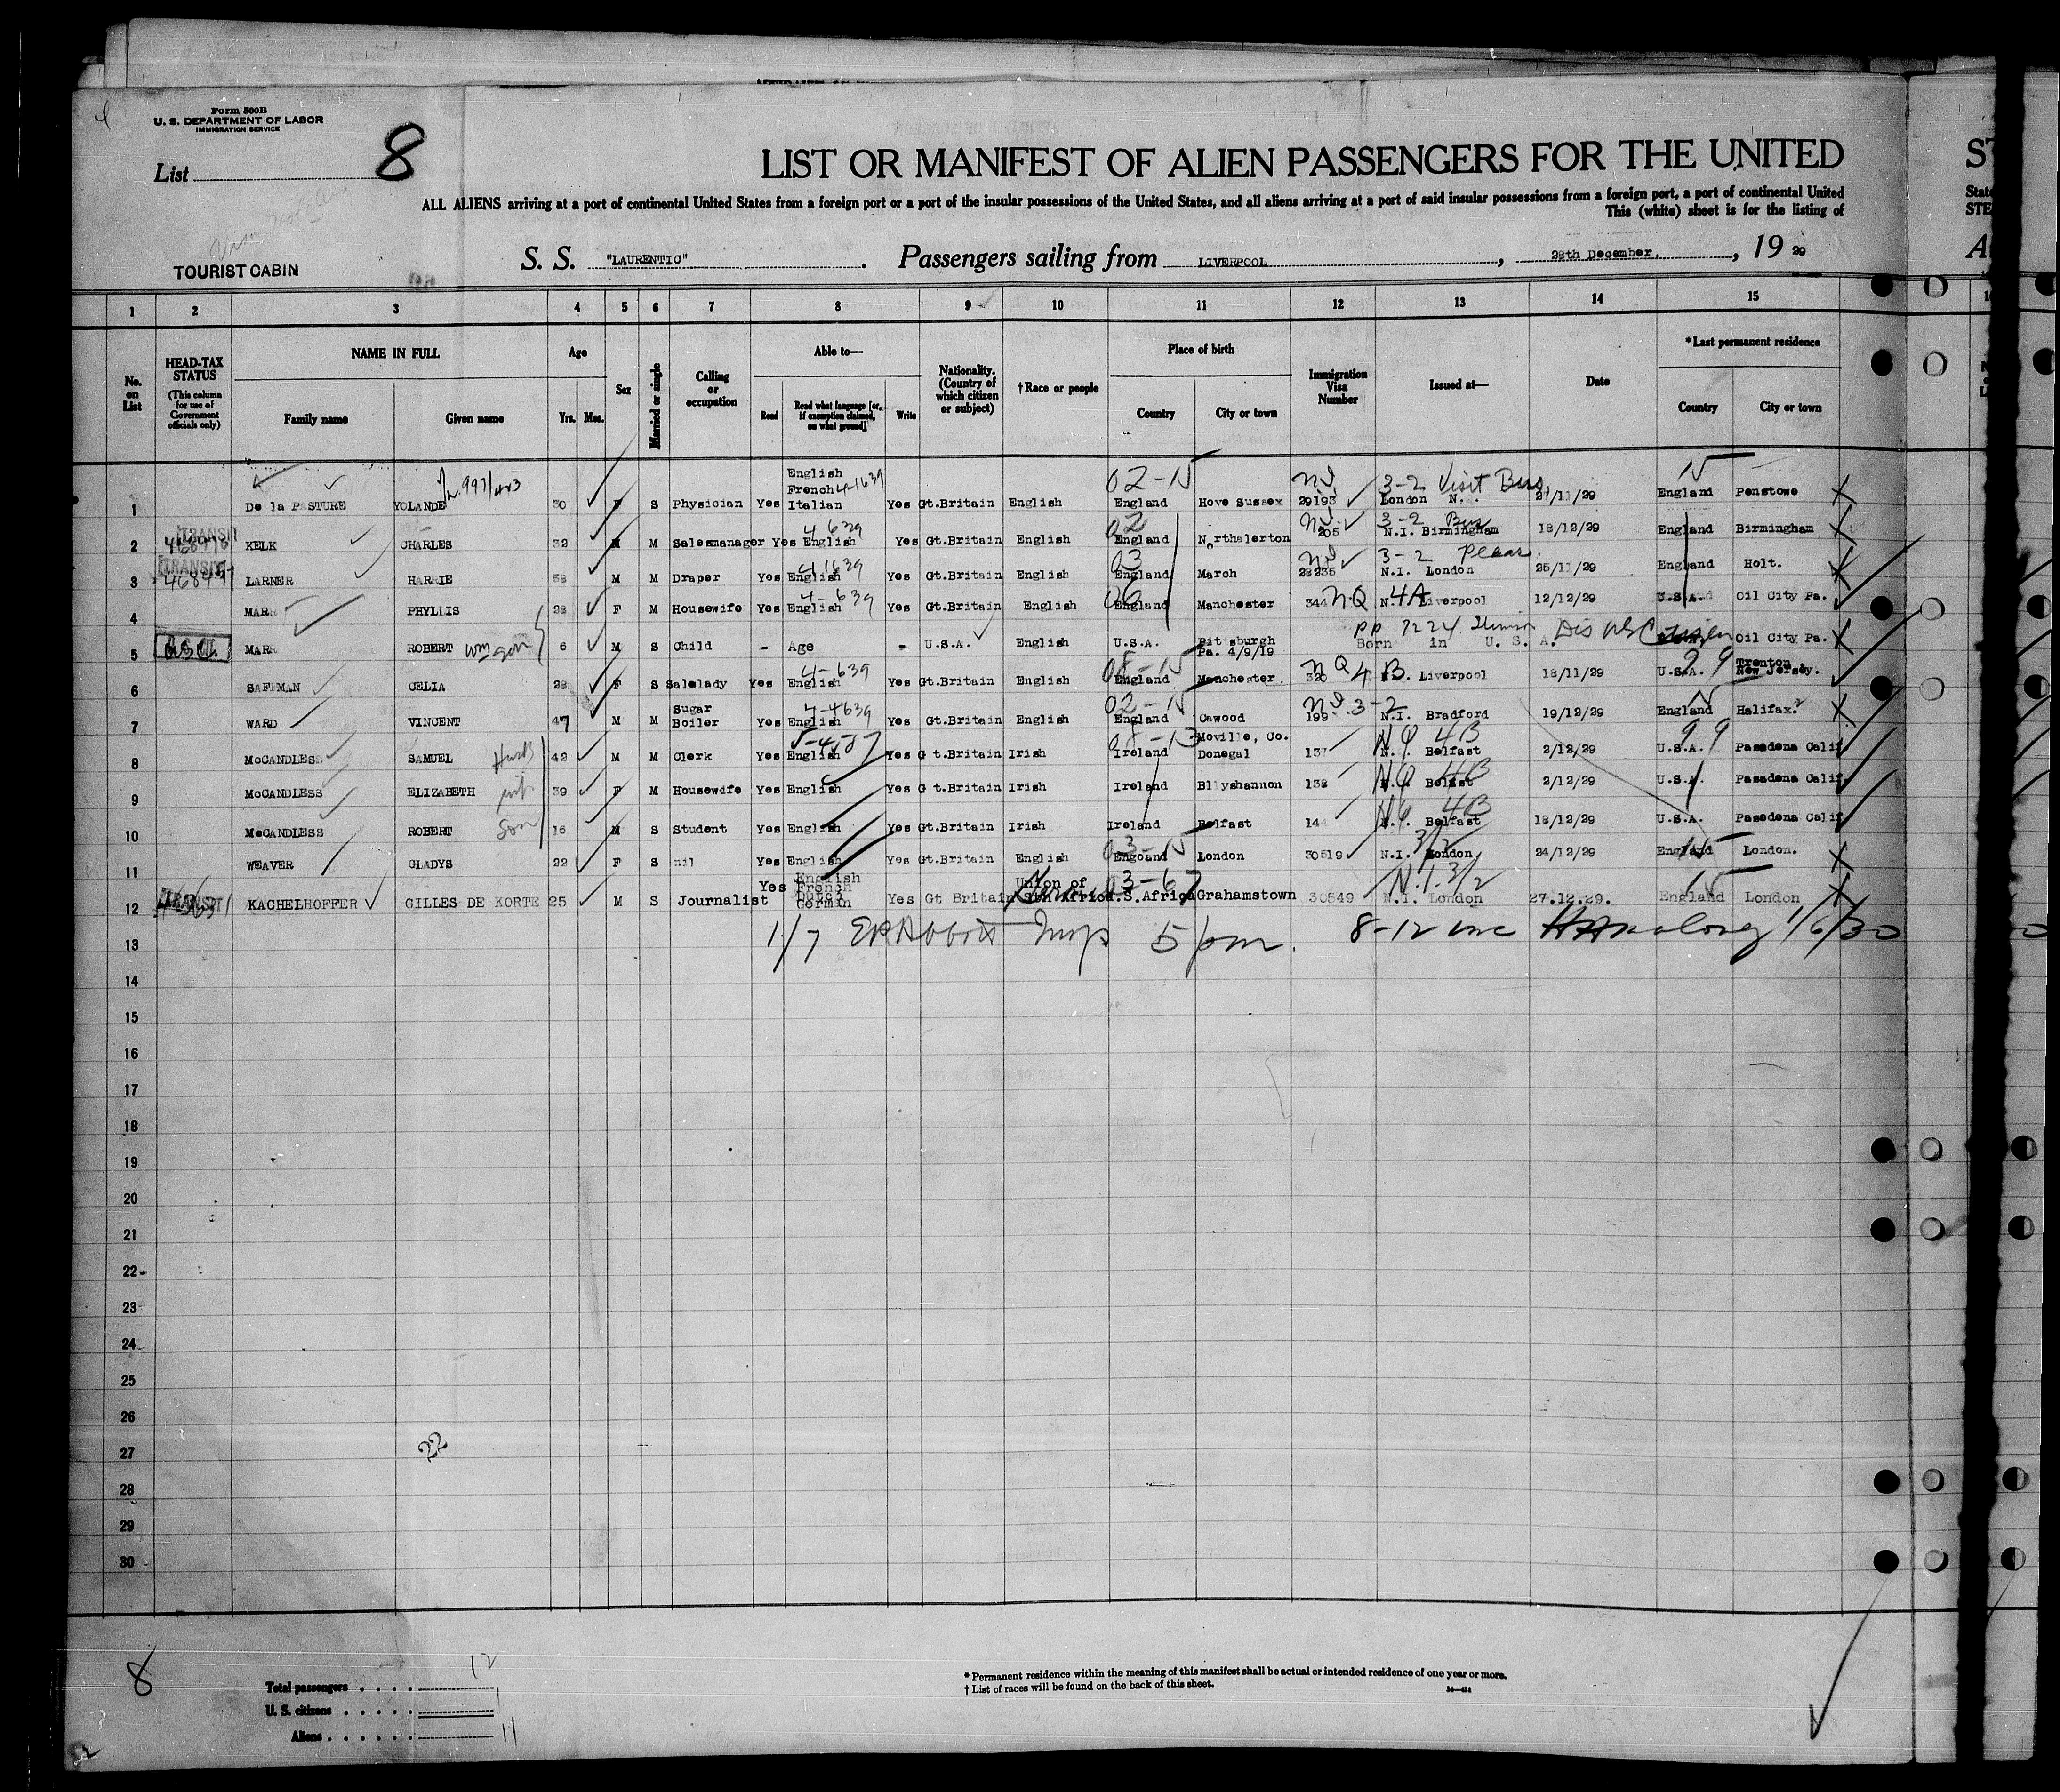 Form 500B
U. S. DEPARTMENT OF LABOR
IMMIGRATION SERVICE
List 8
LIST OR MANIFEST OF ALIEN PASSENGERS FOR THE UNITED
ALL ALIENS arriving at a port of continental United States from a foreign port or a port of the insular possessions of the United States, and all aliens arriving at a port of said insular possessions from a foreign port, a port of continental United
This (white) sheet is for the listing of
TOURIST CABIN
S. S. "LAURENTIC". Passengers sailing from LIVERPOOL, 28th December, 19 29
1 2 3 4 5 6 7 8 9 10 11 12 13 14 15
No. on List
HEAD-TAX STATUS (This column for use of Government officials only)
NAME IN FULL
Family name Given name
Age
Yrs. Mos.
Sex
Married or single
Calling or occupation
Able to—
Read Read what language [or, if exemption claimed, on what ground] Write
Nationality. (Country of which citizen or subject)
†Race or people
Place of birth
Country City or town
Immigration Visa Number
Issued at—
Date
*Last permanent residence
Country City or town
1 De la PASTURE YOLANDE 30 F S Physician Yes English French Italian Yes Gt.Britain English England Hove Sussex 29193 London N. 3-2 Visit Bus. 27/11/29 England Penstowe
2 TRANSIT KELK CHARLES 32 M M Salesmanager Yes English Yes Gt.Britain English England Northalerton 205 N.I. Birmingham 3-2 Bus 18/12/29 England Birmingham
3 TRANSIT LARNER HARRIE 58 M M Draper Yes English Yes Gt.Britain English England March 28235 N.I. London 3-2 Pleas. 25/11/29 England Holt.
4 MARR PHYLLIS 28 F M Housewife Yes English Yes Gt.Britain English England Manchester 344 NQ 4A Liverpool 12/12/29 U.S.A. Oil City Pa.
5 MARR ROBERT Wm son 6 M S Child - Age - U.S.A. English U.S.A. Pittsburgh Pa. 4/9/19 Born in U. S. A. Oil City Pa.
6 SAFFMAN CELIA 28 F S Salelady Yes English Yes Gt.Britain English England Manchester 320 NQ 4B Liverpool 18/11/29 U.S.A. Trenton New Jersey.
7 WARD VINCENT 47 M M Sugar Boiler Yes English Yes Gt.Britain English England Cawood 199 N.I. Bradford 3-2 19/12/29 England Halifax.
8 McCANDLESS SAMUEL Husb 42 M M Clerk Yes English Yes G t.Britain Irish Ireland Moville, Co. Donegal 137 NQ 4B Belfast 2/12/29 U.S.A. Pasadena Calif
9 McCANDLESS ELIZABETH wife 39 F M Housewife Yes English Yes G t.Britain Irish Ireland Bllyshannon 138 NQ 4B Belfast 2/12/29 U.S.A. Pasadena Calif
10 McCANDLESS ROBERT Son 16 M S Student Yes English Yes Gt.Britain Irish Ireland Belfast 144 NQ 4B Belfast 18/12/29 U.S.A. Pasedena Calif
11 WEAVER GLADYS 22 F S nil Yes English Yes Gt.Britain English Engoand London 30519 N.I. London 3/2 24/12/29 England London.
12 TRANSIT KACHELHOFFER GILLES DE KORTE 25 M S Journalist Yes English French Dutch German Yes Gt Britain Union of Sth Africa S.Africa Grahamstown 30549 N.I. London N.I. 3/2 27.12.29. England London
13 1/7 5 pm. 8-12 inc 1/6/30
14
15
16
17
18
19
20
21
22
23
24
25
26
27
22
28
29
30
8
Total passengers 12
U. S. citizens
Aliens 11
* Permanent residence within the meaning of this manifest shall be actual or intended residence of one year or more.
† List of races will be found on the back of this sheet.